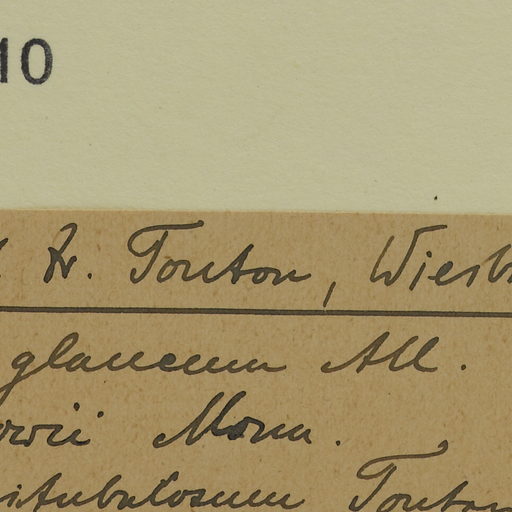 10
Fr. Touton, Wiesb
glaucum All.
owii Monn.
itubulosum Touton